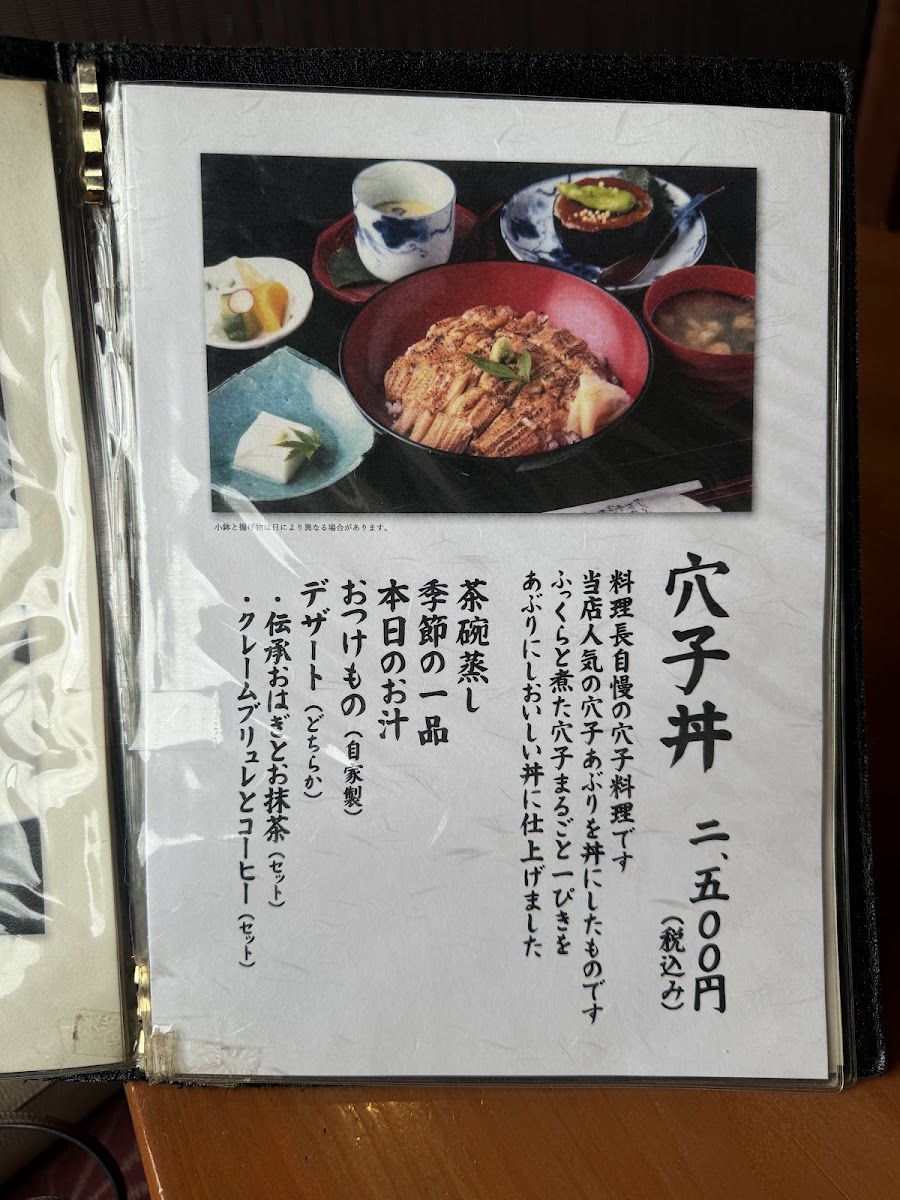 小鉢と揚げ物は日により異なる場合があります。
穴子丼 二、五〇〇円
(税込み)
料理長自慢の穴子料理です
当店人気の穴子あぶりを丼にしたものです
ふっくらと煮た穴子まるごと一ぴきを
あぶりにしおいしい丼に仕上げました
茶碗蒸し
季節の一品
本日のお汁
おつけもの(自家製)
デザート(どちらか)
・伝承おはぎとお抹茶(セット)
・クレームブリュレとコーヒー(セット)